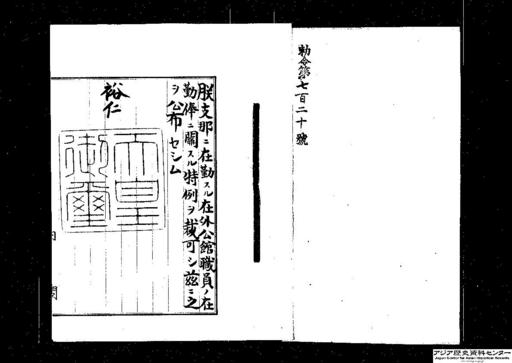 勅令第七百二十號
朕支那ニ在勤スル在外公館職員ノ在
勤俸ニ關スル特例ヲ裁可シ茲ニ之
ヲ公布セシム
裕仁
天皇
御璽
内閣
アジア歴史資料センター
Japan Center for Asian Historical Records